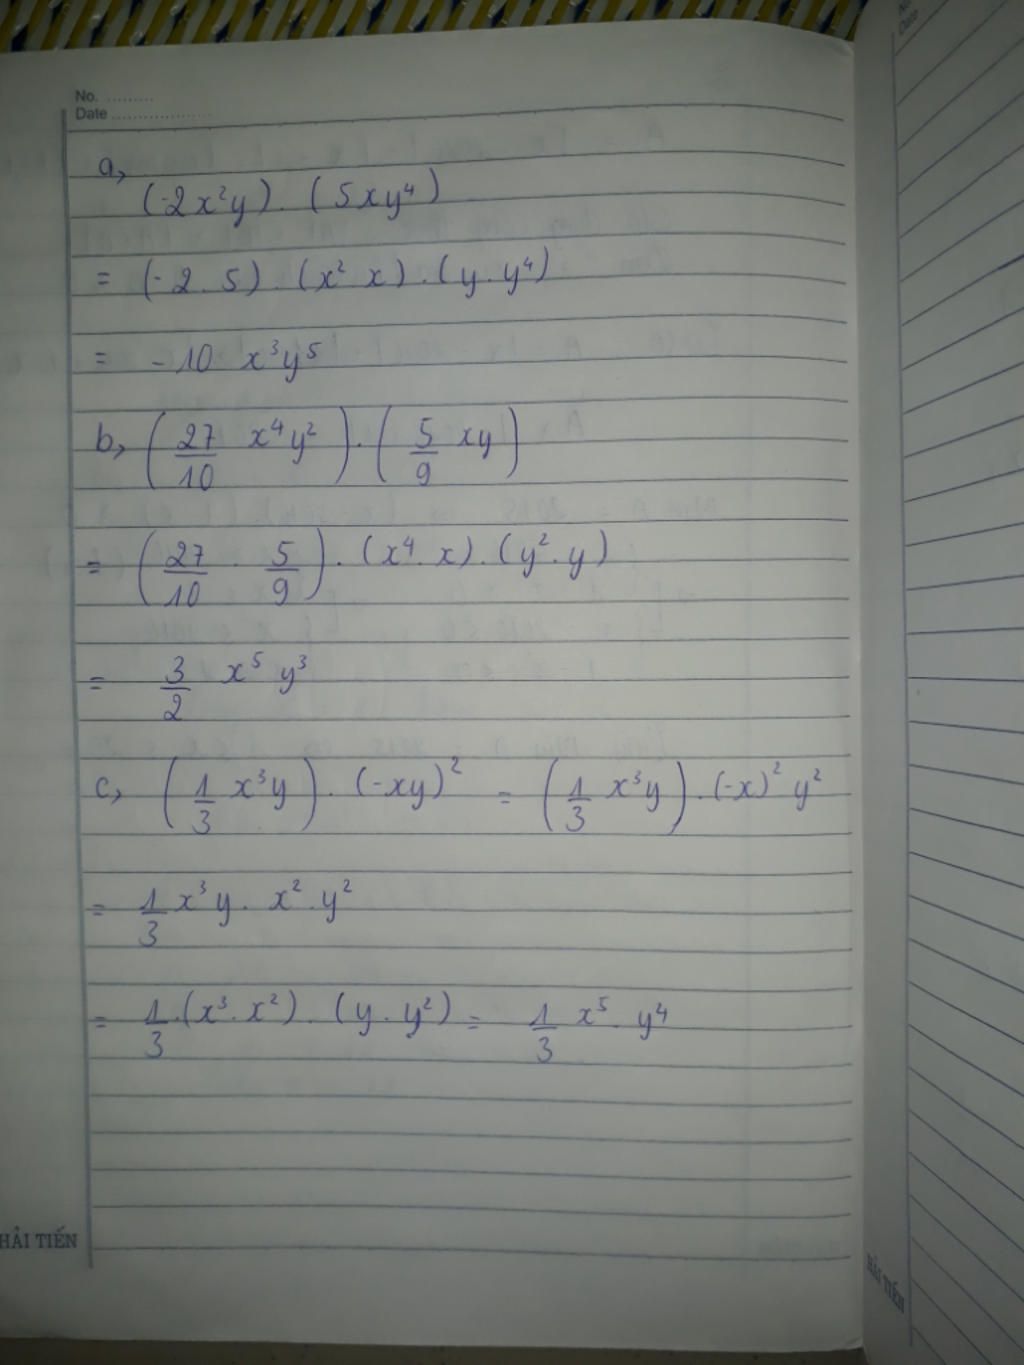 No. .........
Date ...................
No.
Date
a,
(-2x²y) . (5xy⁴)
= (-2 . 5) . (x² x) . (y . y⁴)
= -10 x³y⁵
b, (27/10 x⁴y²) . (5/9 xy)
= (27/10 . 5/9) . (x⁴ . x) . (y² . y)
= 3/2 x⁵ y³
c, (1/3 x³y) . (-xy)² = (1/3 x³y) . (-x)² y²
= 1/3 x³y . x² . y²
= 1/3 . (x³ . x²) . (y . y²) = 1/3 x⁵ . y⁴
HẢI TIẾN
HẢI TIẾN